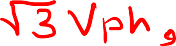 √3 Vph,